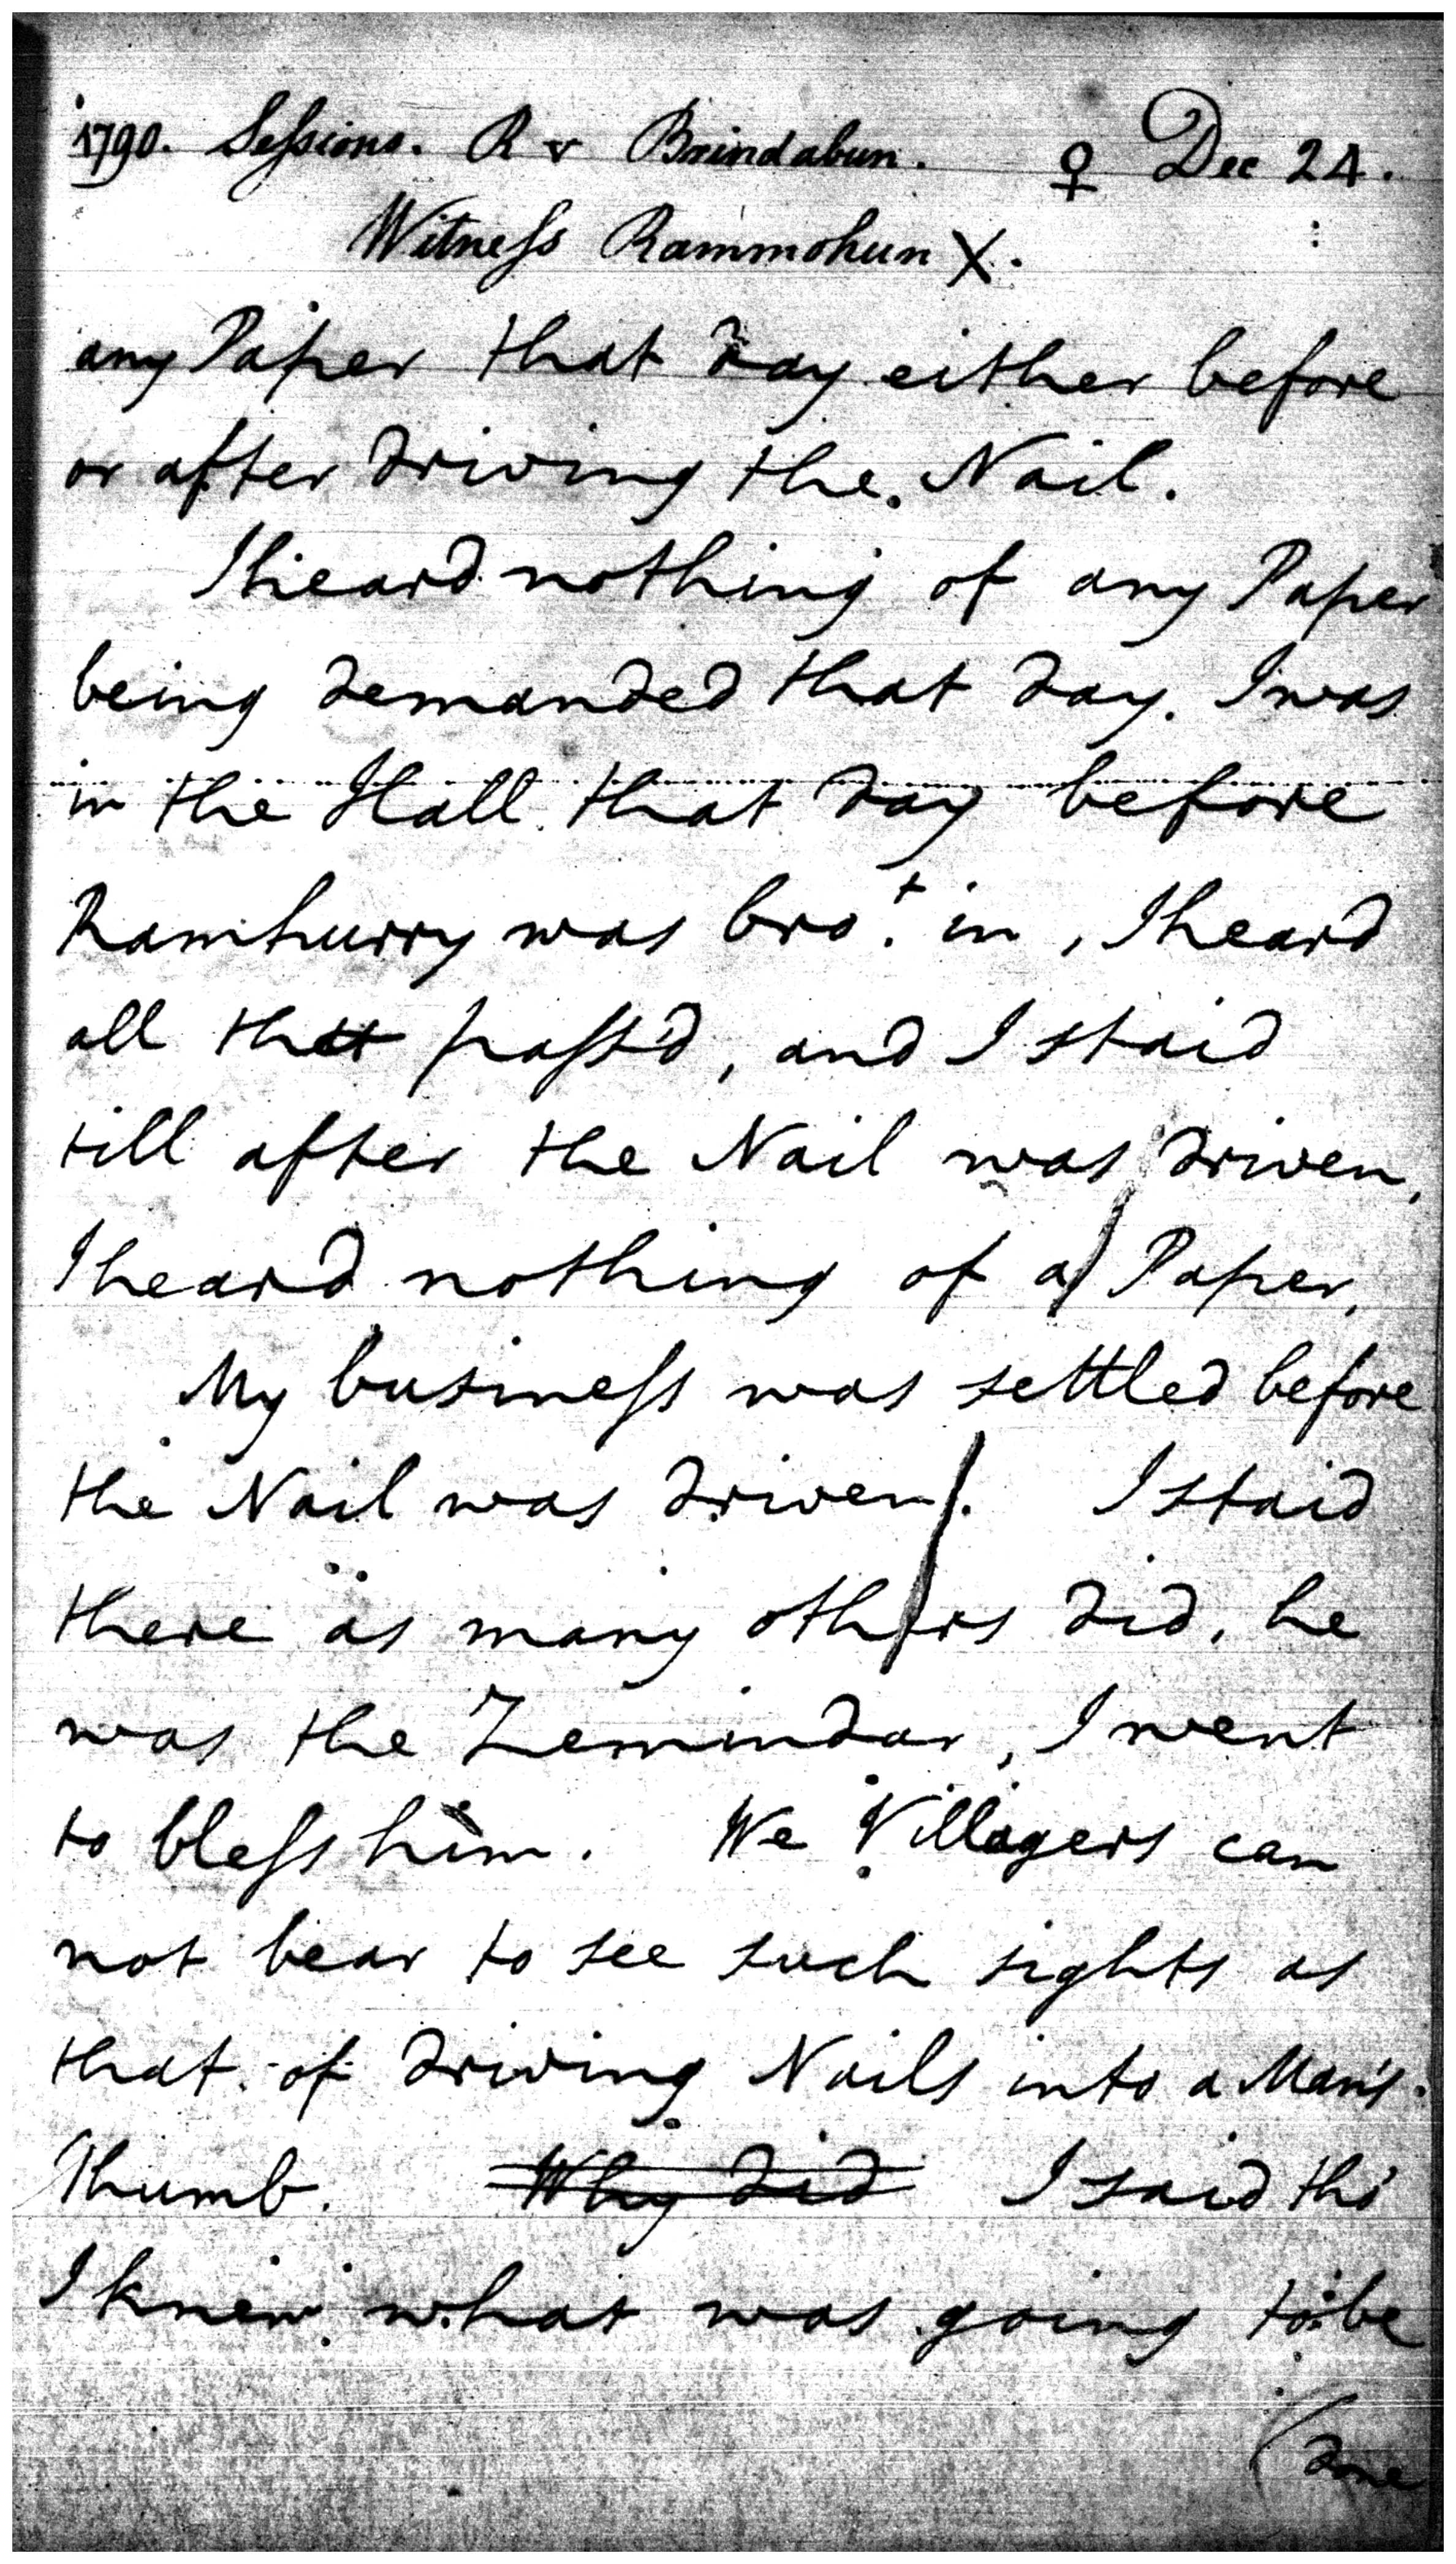 1790. Sessions. R v Brindabun. ♀ Dec 24.
Witness Rammohun X.
any Paper that day either before
or after driving the Nail.
I heard nothing of any Paper
being demanded that day. I was
in the Hall that day before
Ramhurry was bro.t in, I heard
all that pass'd, and I staid
till after the Nail was driven,
I heard nothing of a Paper,
My business was settled before
the Nail was driven. I staid
there as many others did, he
was the Zemindar, I went
to bless him. We Villagers can
not bear to see such sights as
that of driving Nails into a Man's
Thumb. Why did I said tho'
I knew what was going to be
(done